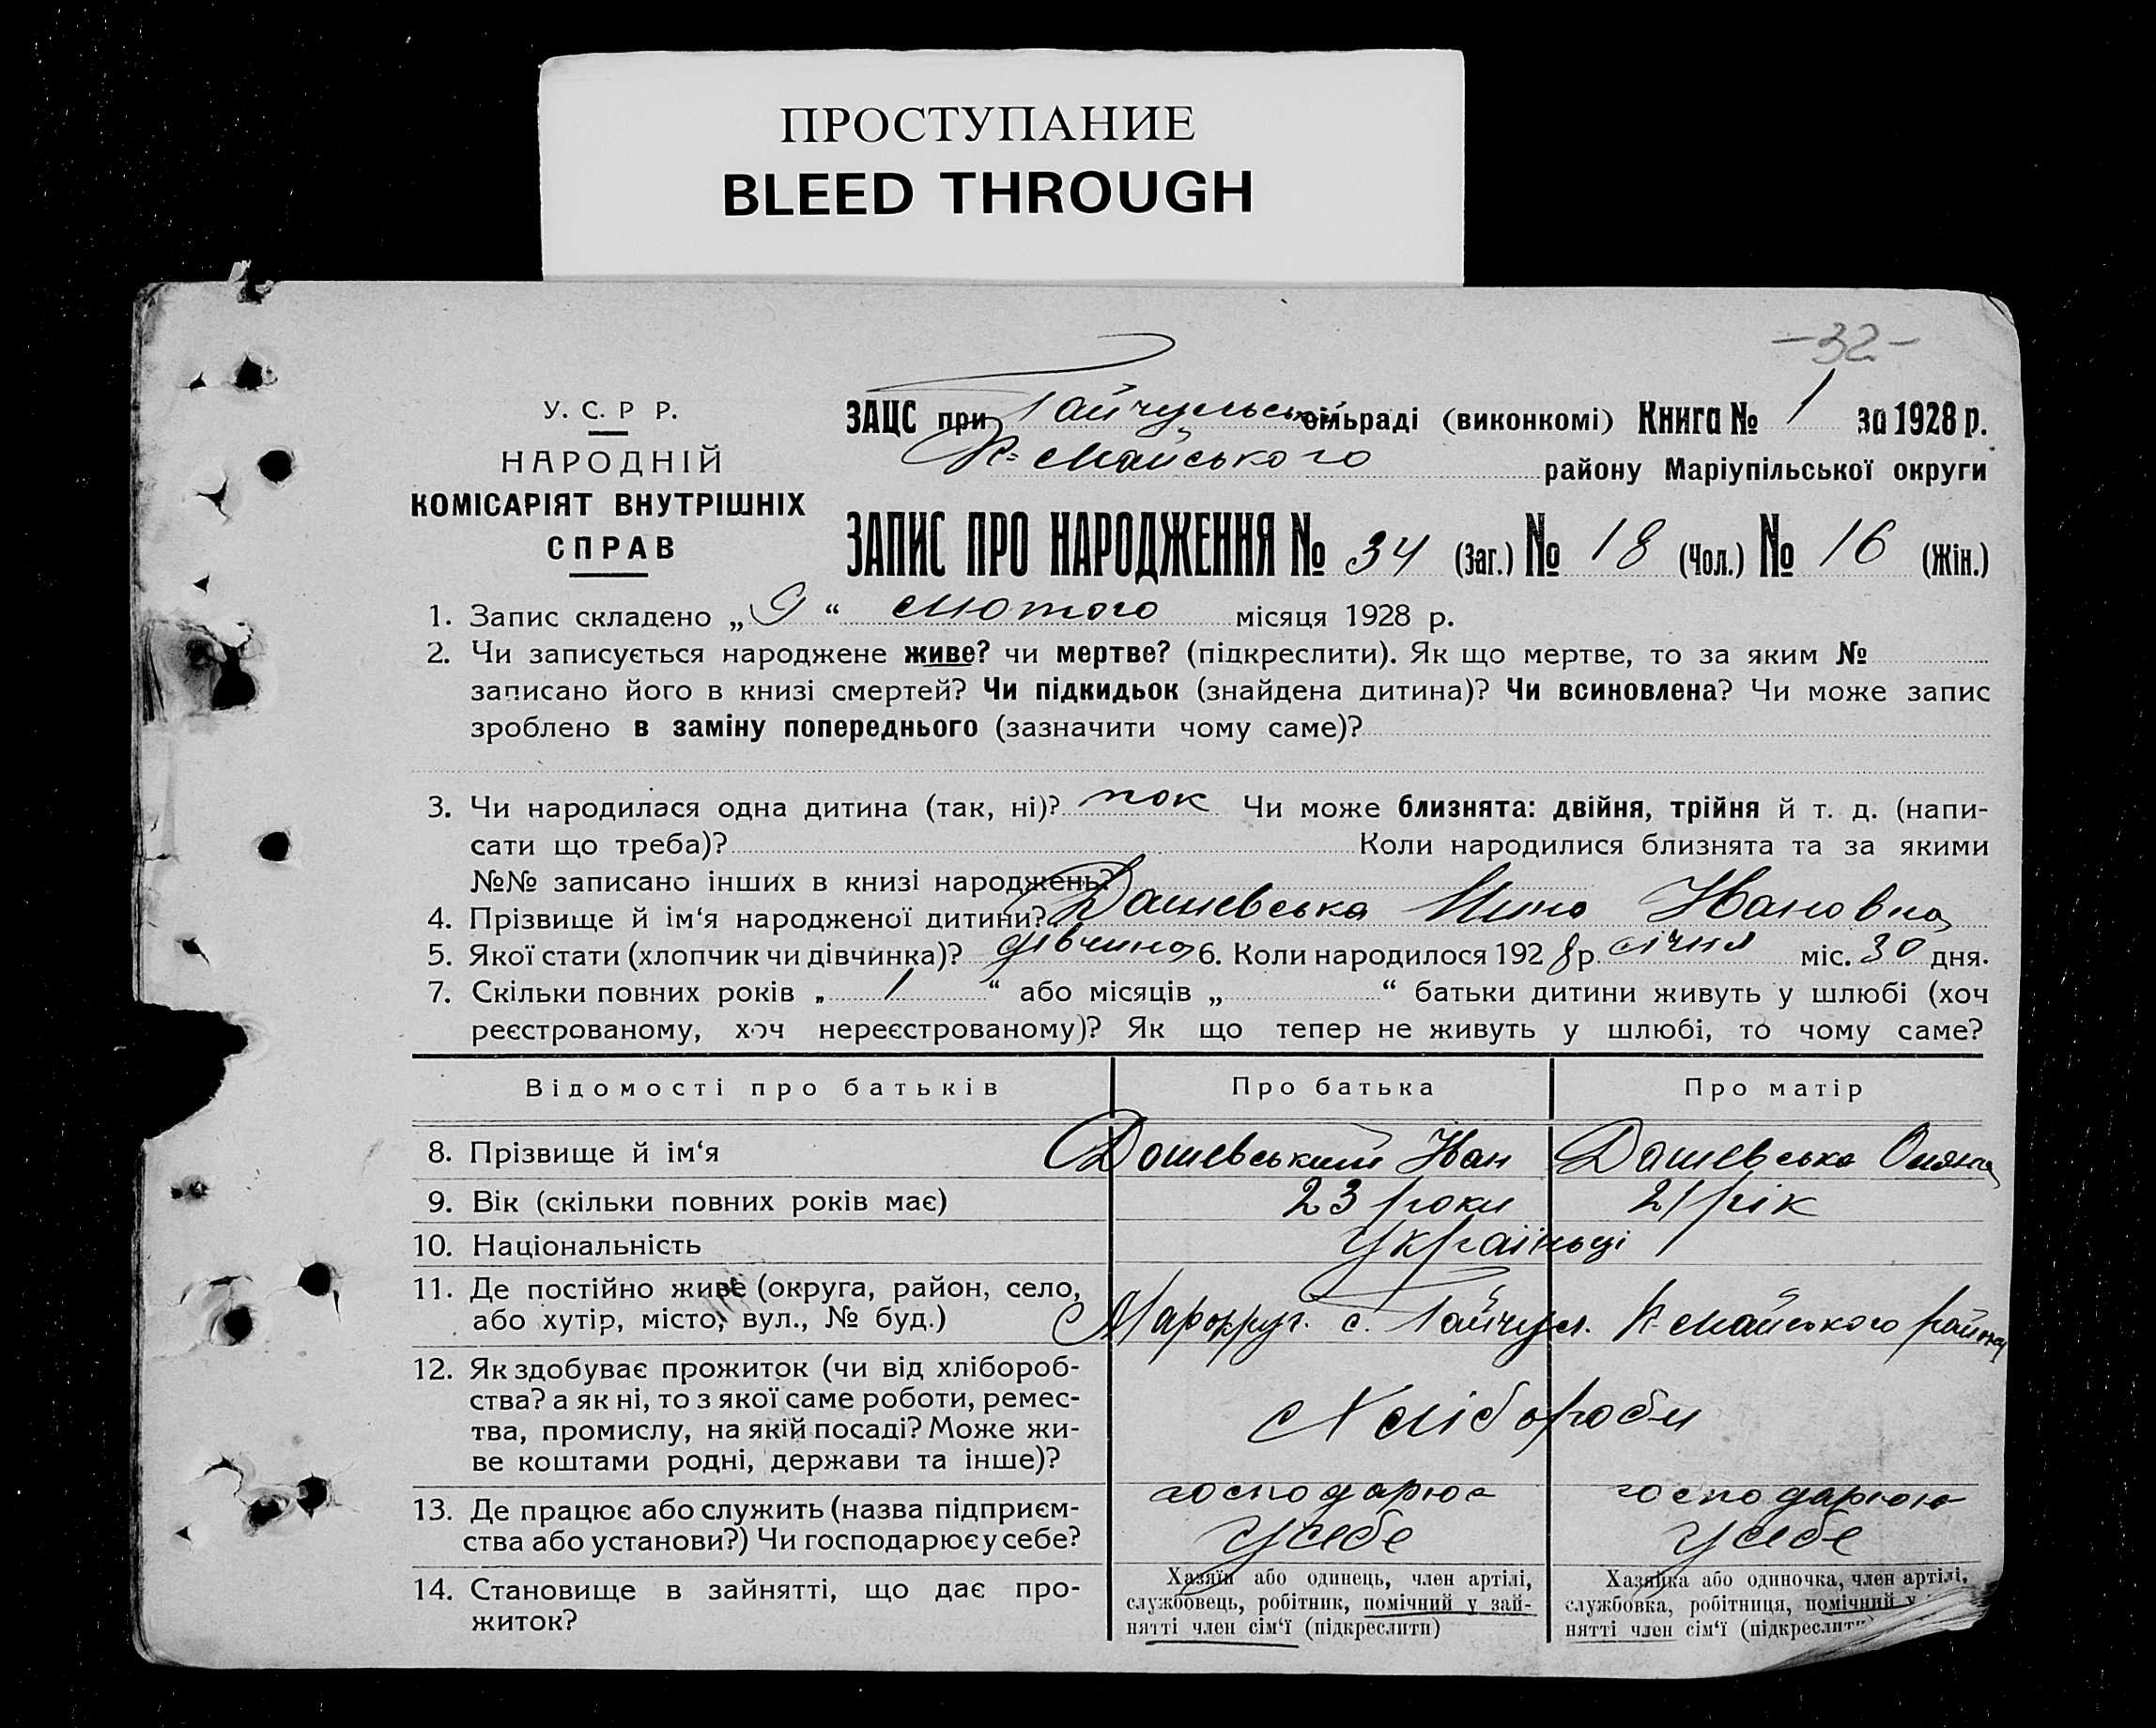 ПРОСТУПАНИЕ
BLEED THROUGH
-32-
У. С. Р Р.
НАРОДНІЙ
КОМІСАРІЯТ ВНУТРІШНІХ
СПРАВ
ЗАЦС при Гайчульськ сільраді (виконкомі) Книга № 1 за 1928 р.
К-Майського району Маріупільської округи
ЗАПИС ПРО НАРОДЖЕННЯ № 34 (Заг.) № 18 (Чол.) № 16 (Жін.)
1. Запис складено „ 9 “ лютого місяця 1928 р.
2. Чи записується народжене живе? чи мертве? (підкреслити). Як що мертве, то за яким №
записано його в книзі смертей? Чи підкидьок (знайдена дитина)? Чи всиновлена? Чи може запис
зроблено в заміну попереднього (зазначити чому саме)?
3. Чи народилася одна дитина (так, ні)? так Чи може близнята: двійня, трійня й т. д. (напи-
сати що треба)? Коли народилися близнята та за якими
№№ записано інших в книзі народжень?
4. Прізвище й ім‘я народженої дитини? Дашевська Нина Ивановна
5. Якої стати (хлопчик чи дівчинка)? дівчина 6. Коли народилося 1928 р. січня міс. 30 дня.
7. Скільки повних років „ 1 “ або місяців „ “ батьки дитини живуть у шлюбі (хоч
реєстрованому, хоч нереєстрованому)? Як що тепер не живуть у шлюбі, то чому саме?
Відомості про батьків Про батька Про матір
8. Прізвище й ім‘я Дашевський Иван Дашевська
9. Вік (скільки повних років має) 23 роки 21 рік
10. Національність Україньці
11. Де постійно живе (округа, район, село, або хутір, місто, вул., № буд.) Мар округ. с. Гайчул. К-Майського району
12. Як здобуває прожиток (чи від хлібороб-
ства? а як ні, то з якої саме роботи, ремес-
тва, промислу, на якій посаді? Може жи-
ве коштами родні, держави та інше)?
Хлібороби
13. Де працює або служить (назва підприєм-
ства або установи?) Чи господарює у себе?
господарює
у себе
господарює
у себе
14. Становище в зайнятті, що дає про-
житок?
Хазяїн або одинець, член артілі,
службовець, робітник, помічний у зай-
нятті член сім‘ї (підкреслити)
Хазяйка або одиночка, член артілі,
службовка, робітниця, помічний у
нятті член сім‘ї (підкреслити)